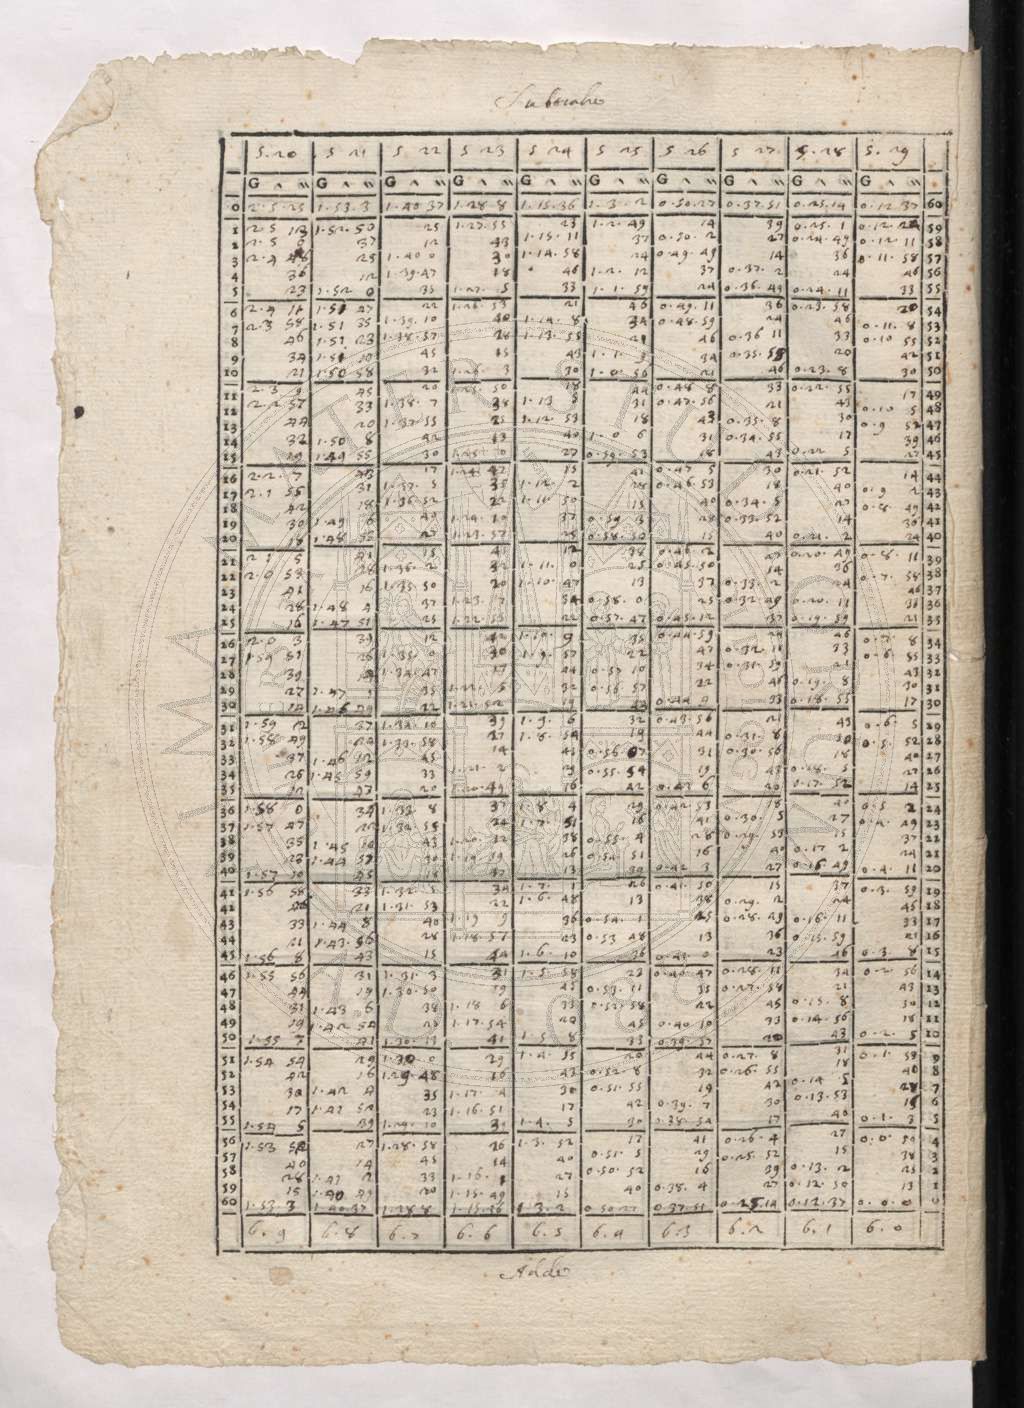 Subtrahe
S. 20 S 21 S 22 S 23 S 24 S 25 S 26 S 27 S. 28 S. 29
G ʌ ʌʌ G ʌ ʌʌ G ʌ ʌʌ G ʌ ʌʌ G ʌ ʌʌ G ʌ ʌʌ G ʌ ʌʌ G ʌ ʌʌ G ʌ ʌʌ G ʌ ʌʌ
0 2·5·25 1·53·3 1·40·37 1·28·8 1·15·36 1·3·2 0·50·27 0·37·51 0·25·14 0·12·37 60
1 2·5 13 1·52·50 25 1·27·55 23 1·2·49 14 39 0·25·1 0·12·24 59
2 2·5 0 37 12 43 1·15·11 37 0·50·2 27 0·24·49 0·12·11 58
3 2·4 48 25 1·40·0 30 1·14·58 24 0·49·49 14 36 0·11·58 57
4 36 12 1·39·47 18 46 1·2·12 37 0·37·2 24 46 56
5 23 1·52 0 35 1·27·5 33 1·1·59 24 0·36·49 0·24·11 33 55
6 2·4 11 1·51 47 22 1·26·53 21 46 0·49·11 36 0·23·58 20 54
7 2·3 58 1·51 35 1·39·10 40 1·14·8 34 0·48·59 24 46 0·11·8 53
8 46 1·51 23 1·38·57 28 1·13·55 21 46 0·36 11 33 0·10 55 52
9 34 1·51 10 45 15 43 1·1·9 34 0·35·58 20 42 51
10 21 1·50 58 32 1·26·3 30 1·0·56 21 46 0·23·8 30 50
11 2·3 9 45 20 1·25·50 18 44 0·48·8 33 0·22·55 17 49
12 2·2·57 33 1·38·7 38 1·13·5 31 0·47·56 21 43 0·10 5 48
13 44 20 1·37·55 25 1·12·53 18 43 0·35·8 30 0·9 52 47
14 32 1·50 8 42 13 40 1·0 6 31 0·34·55 17 39 46
15 19 1·49 55 30 27 0·59·53 18 43 0·22 5 27 45
16 2·2·7 43 17 1·24·47 15 41 0·47 5 30 0·21·52 14 44
17 2·1 55 31 1·37·5 35 1·12·2 28 0·46·53 18 40 0·9 2 43
18 42 18 1·36·52 22 1·11·50 15 40 0·34·5 27 0·8 49 42
19 30 1·49 6 40 37 28 0·33·52 14 36 41
20 18 27 1·23·57 25 15 40 0·21·2 24 40
21 2·1 5 41 15 12 38 0·46·2 27 0·20·49 0·8·11 39
22 2·0 53 28 32 1·11·0 25 0·45·50 14 36 0·7·58 38
23 41 16 1·35·50 20 1·10·47 13 37 0·33·2 24 46 37
24 28 1·48 4 37 1·23·7 34 0·58·0 25 0·32·49 0·20·11 33 36
25 16 1·47 51 25 22 0·57·47 0·45·12 37 0·19·59 21 35
26 2·0 3 39 12 42 35 0·44·59 24 46 0·7 8 34
27 1·59 51 26 1·35·0 30 22 47 0·32·11 33 0·6 55 33
28 39 14 1·34·47 17 44 0·57·10 34 0·31·59 21 43 32
29 27 35 32 0·56·57 22 46 0·19·8 30 31
30 14 22 19 33 0·18·55 17 30
31 1·59 2 37 1·34·10 39 1·9·6 32 0·43·56 21 43 0·6·5 29
32 1·58·49 24 1·33·58 27 1·8·54 19 44 0·31·8 30 0·5·52 28
33 37 1·46 12 45 14 41 31 0·30·56 18 40 27
34 26 1·45 59 33 1·21·2 29 0·55·54 19 43 0·18·5 27 26
35 12 47 20 1·20·49 16 42 0·43 6 30 0·17·52 14 25
36 1·58 0 34 1·33·8 37 1·8·4 29 0·42·53 18 40 0·5 2 24
37 1·57 47 22 24 1·7·51 16 41 0·30·5 27 0·4·49 23
38 35 43 38 28 15 37 22
39 23 1·44 57 30 26 0·54·51 16 40 0·17 2 24 21
40 1·57 10 45 18 13 0·42·3 27 0·16·49 0·4·11 20
41 1·56 58 33 34 1·7·1 26 0·41·50 15 37 0·3·59 19
42 46 21 1·31·53 22 1·6·48 13 38 0·29·2 24 45 18
43 33 1·44 8 40 1·19 9 36 0·54·1 25 0·28·49 0·16·11 33 17
44 21 1·43·56 28 1·18·57 23 0·53 48 13 36 0·15·59 21 16
45 1·56 8 43 15 44 1·6·10 36 23 46 0·3·8 15
46 1·55 56 31 1·31·3 31 1·5·58 23 0·40·47 0·28·11 34 0·2·56 14
47 44 19 1·30·50 19 45 0·53·11 35 0·27·58 21 43 13
48 31 1·43 6 38 1·18 6 33 0·52·58 22 45 0·15·8 30 12
49 19 1·42·54 25 1·17·54 20 45 0·40·10 33 0·14·56 18 11
50 1·55 7 41 41 1·5·8 33 20 43 0·2·5 10
51 1·54 54 29 1·30·0 29 1·4·55 20 44 0·27·8 31 9
52 42 16 1·29·48 16 43 0·52·8 32 0·26·55 18 40 8
53 30 1·42 4 35 1·17·4 30 0·51·55 19 42 0·14·5 28 7
54 17 23 1·16·51 17 42 0·39·7 30 0·13·53 15 6
55 1·54 5 39 1·29·10 1·4·5 30 0·38·54 17 40 0·1·3 5
56 27 1·28·58 26 1·3·52 17 41 0·26·4 27 0·0·50 4
57 40 14 45 14 40 0·51·5 29 0·25·52 15 38 3
58 28 1·41 2 33 27 0·50·52 16 39 0·13·2 25 2
59 15 1·40 49 20 1·15·49 15 40 0·38·4 27 0·12·50 13 1
60 1·53·3 1·40·37 1·28·8 1·15·36 1·3·2 0·50·27 0·37·51 0·25·14 0·12·37 0·0·0 0
6. 9 6. 8 6. 7 6. 6 6. 5 6. 4 6. 3 6. 2 6. 1 6. 0
Adde